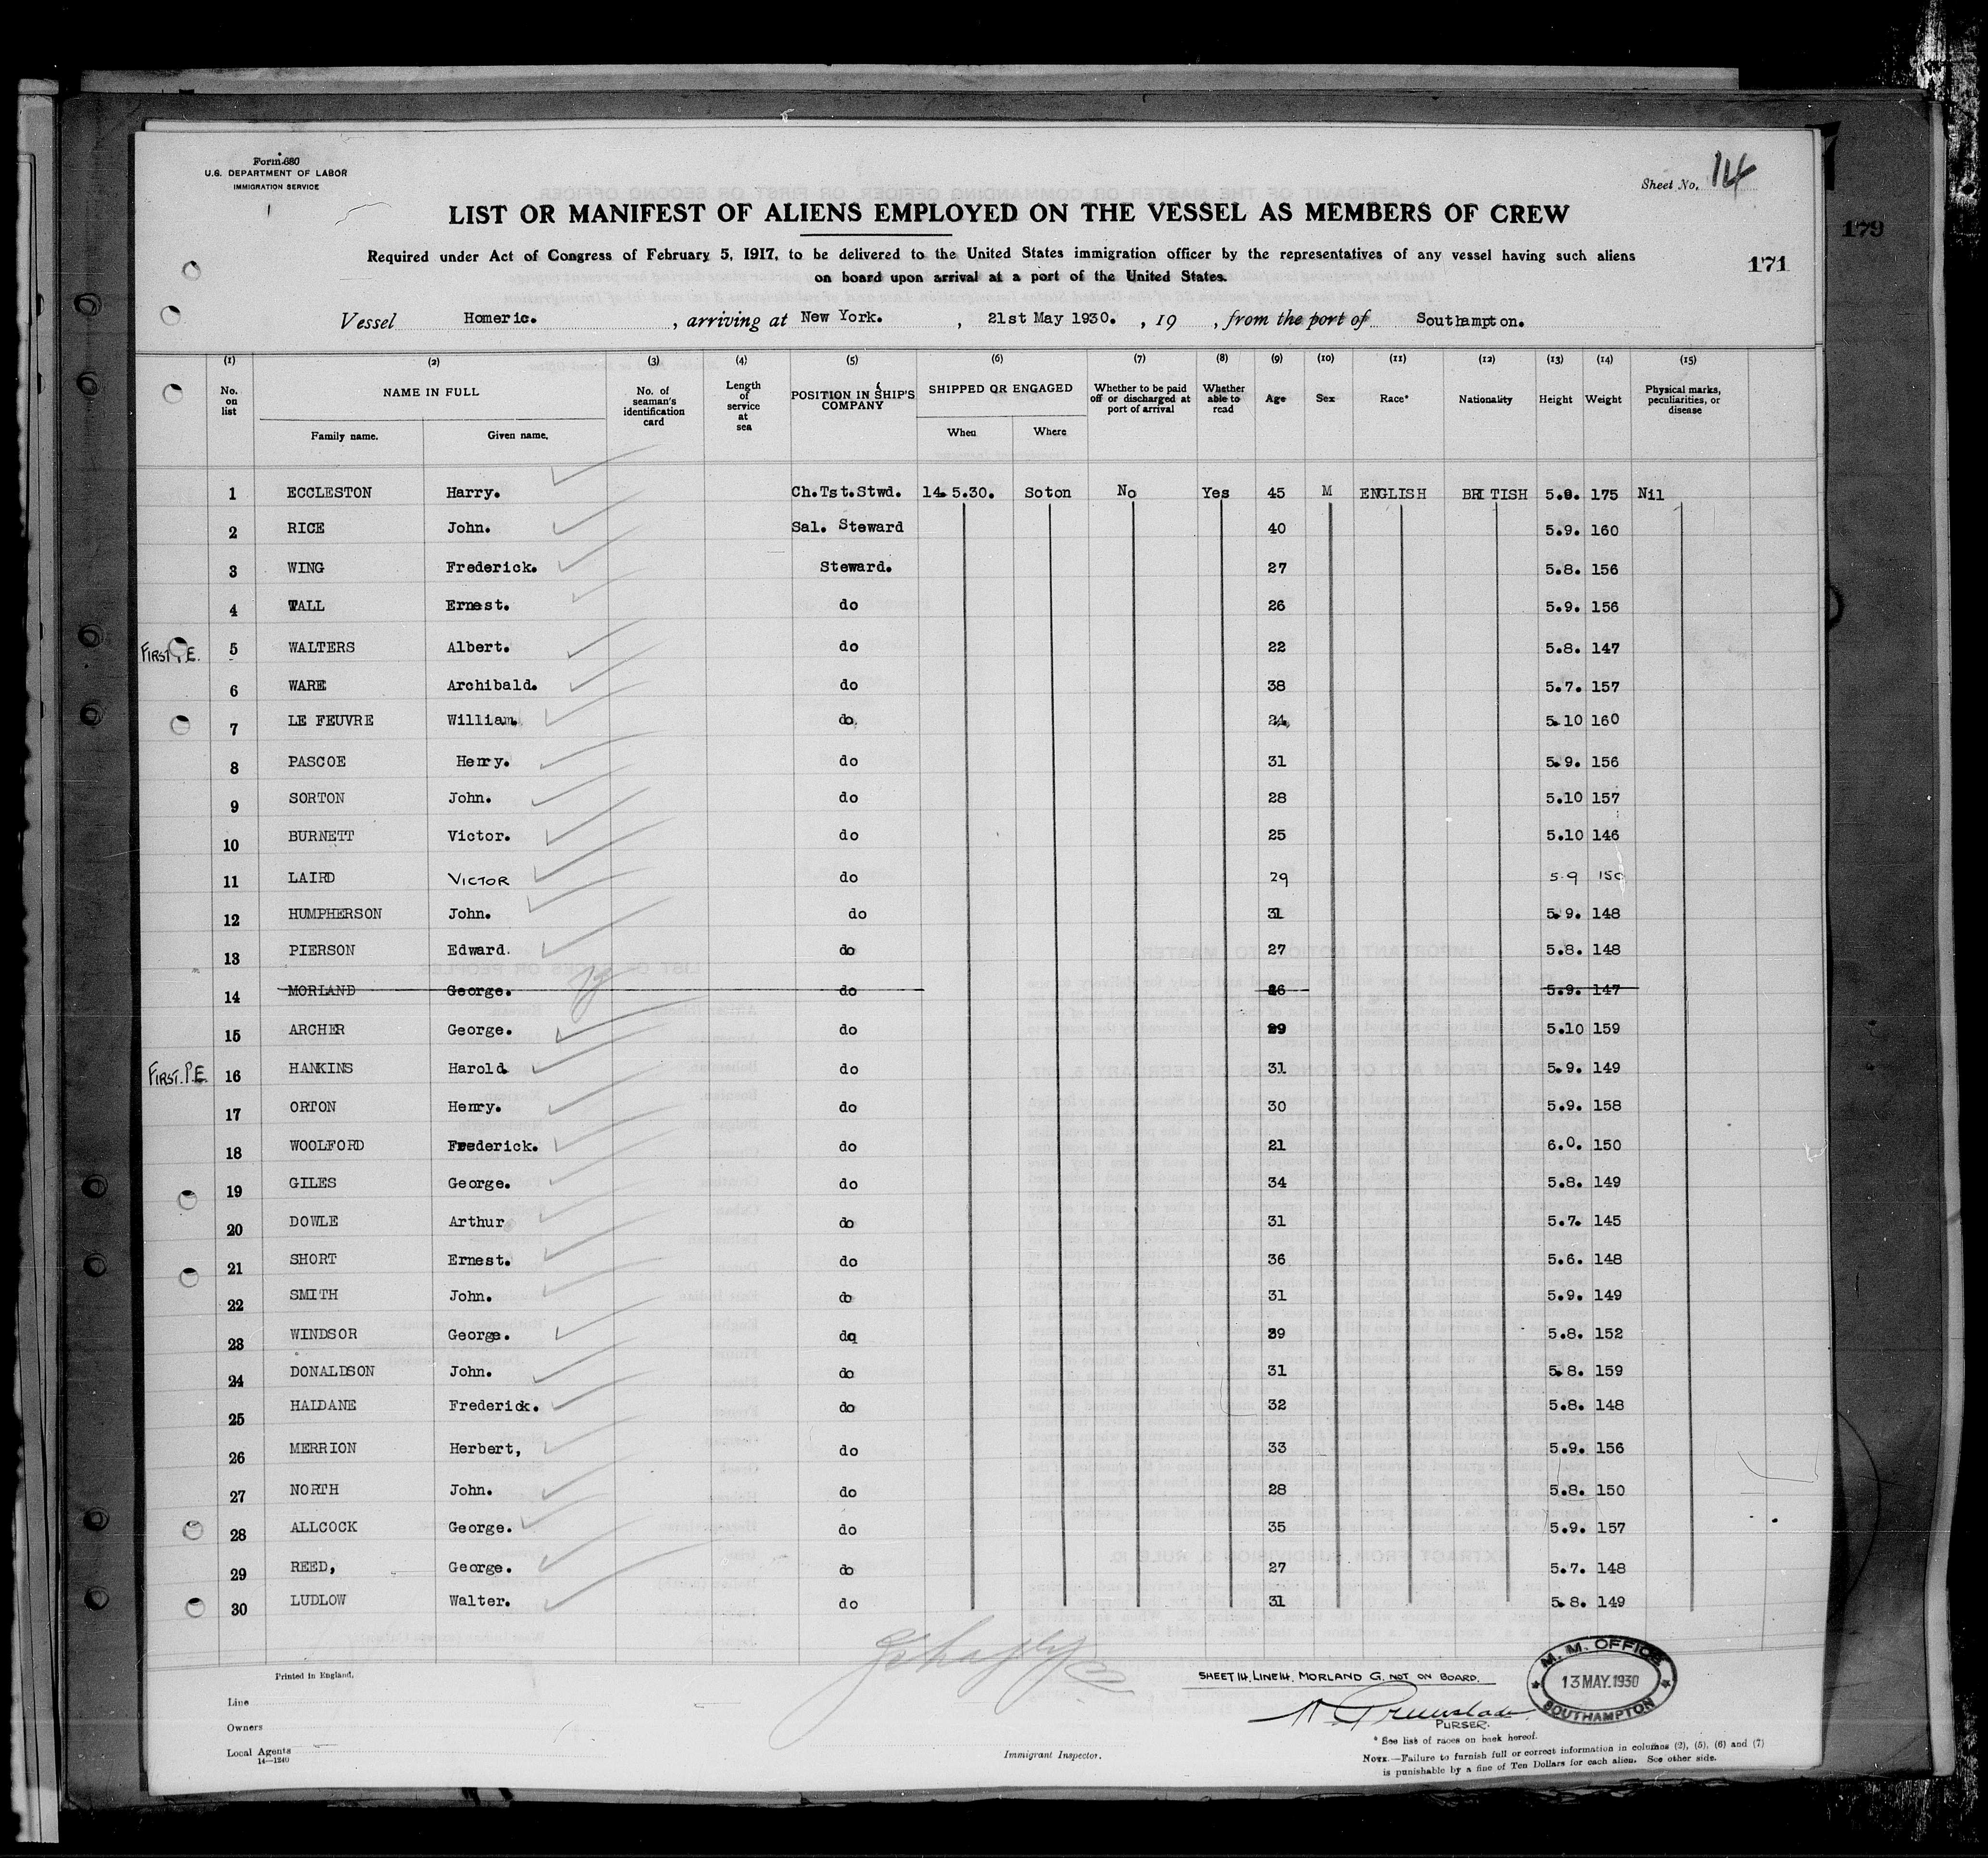 Form 680
U.S. DEPARTMENT OF LABOR
IMMIGRATION SERVICE
Sheet No. 14
179
171
LIST OR MANIFEST OF ALIENS EMPLOYED ON THE VESSEL AS MEMBERS OF CREW
Required under Act of Congress of February 5, 1917, to be delivered to the United States immigration officer by the representatives of any vessel having such aliens
on board upon arrival at a port of the United States.
Vessel Homeric. , arriving at New York. , 21st May 1930. , 19 , from the port of Southampton.
(1) (2) (3) (4) (5) (6) (7) (8) (9) (10) (11) (12) (13) (14) (15)
No. on list NAME IN FULL No. of seaman's identification card Length of service at sea POSITION IN SHIP'S COMPANY SHIPPED OR ENGAGED Whether to be paid off or discharged at port of arrival Whether able to read Age Sex Race* Nationality Height Weight Physical marks, peculiarities, or disease
Family name. Given name. When Where
1 ECCLESTON Harry. Ch.Tst.Stwd. 14.5.30. Soton No Yes 45 M ENGLISH BRITISH 175 Nil
2 RICE John. Sal. Steward 40 5.9. 160
3 WING Frederick. Steward. 27 5.8. 156
4 TALL Ernest. do 26 5.9. 156
FIRST P.E. 5 WALTERS Albert. do 22 5.8. 147
6 WARE Archibald. do 38 5.7. 157
7 LE FEUVRE William. do. 24 5.10 160
8 PASCOE Henry. do 31 5.9. 156
9 SORTON John. do 28 5.10 157
10 BURNETT Victor. do 25 5.10 146
11 LAIRD VICTOR do 29 5.9 150
12 HUMPHERSON John. do 31 5.9. 148
13 PIERSON Edward. do 27 5.8. 148
14 MORLAND George. do 26 5.9. 147
15 ARCHER George. do 29 5.10 159
FIRST.P.E. 16 HANKINS Harold do 31 5.9. 149
17 ORTON Henry. do 30 5.9. 158
18 WOOLFORD Frederick. do 21 6.0. 150
19 GILES George. do 34 5.8. 149
20 DOWLE Arthur do 31 5.7. 145
21 SHORT Ernest. do 36 5.6. 148
22 SMITH John. do 31 5.9. 149
23 WINDSOR George. do 39 5.8. 152
24 DONALDSON John. do 31 5.8. 159
25 HALDANE Frederick. do 32 5.8. 148
26 MERRION Herbert, do 33 5.9. 156
27 NORTH John. do 28 5.8. 150
28 ALLCOCK George. do 35 5.9. 157
29 REED, George. do 27 5.7. 148
30 LUDLOW Walter. do 31 5.8. 149
Printed in England.
SHEET 14. LINE 14. MORLAND G. NOT ON BOARD.
M. M. OFFICE
13 MAY.1930
SOUTHAMPTON
PURSER.
Line
Owners
Local Agents
14—1240
Immigrant Inspector.
* See list of races on back hereof.
NOTE.—Failure to furnish full or correct information in columns (2), (5), (6) and (7)
is punishable by a fine of Ten Dollars for each alien. See other side.